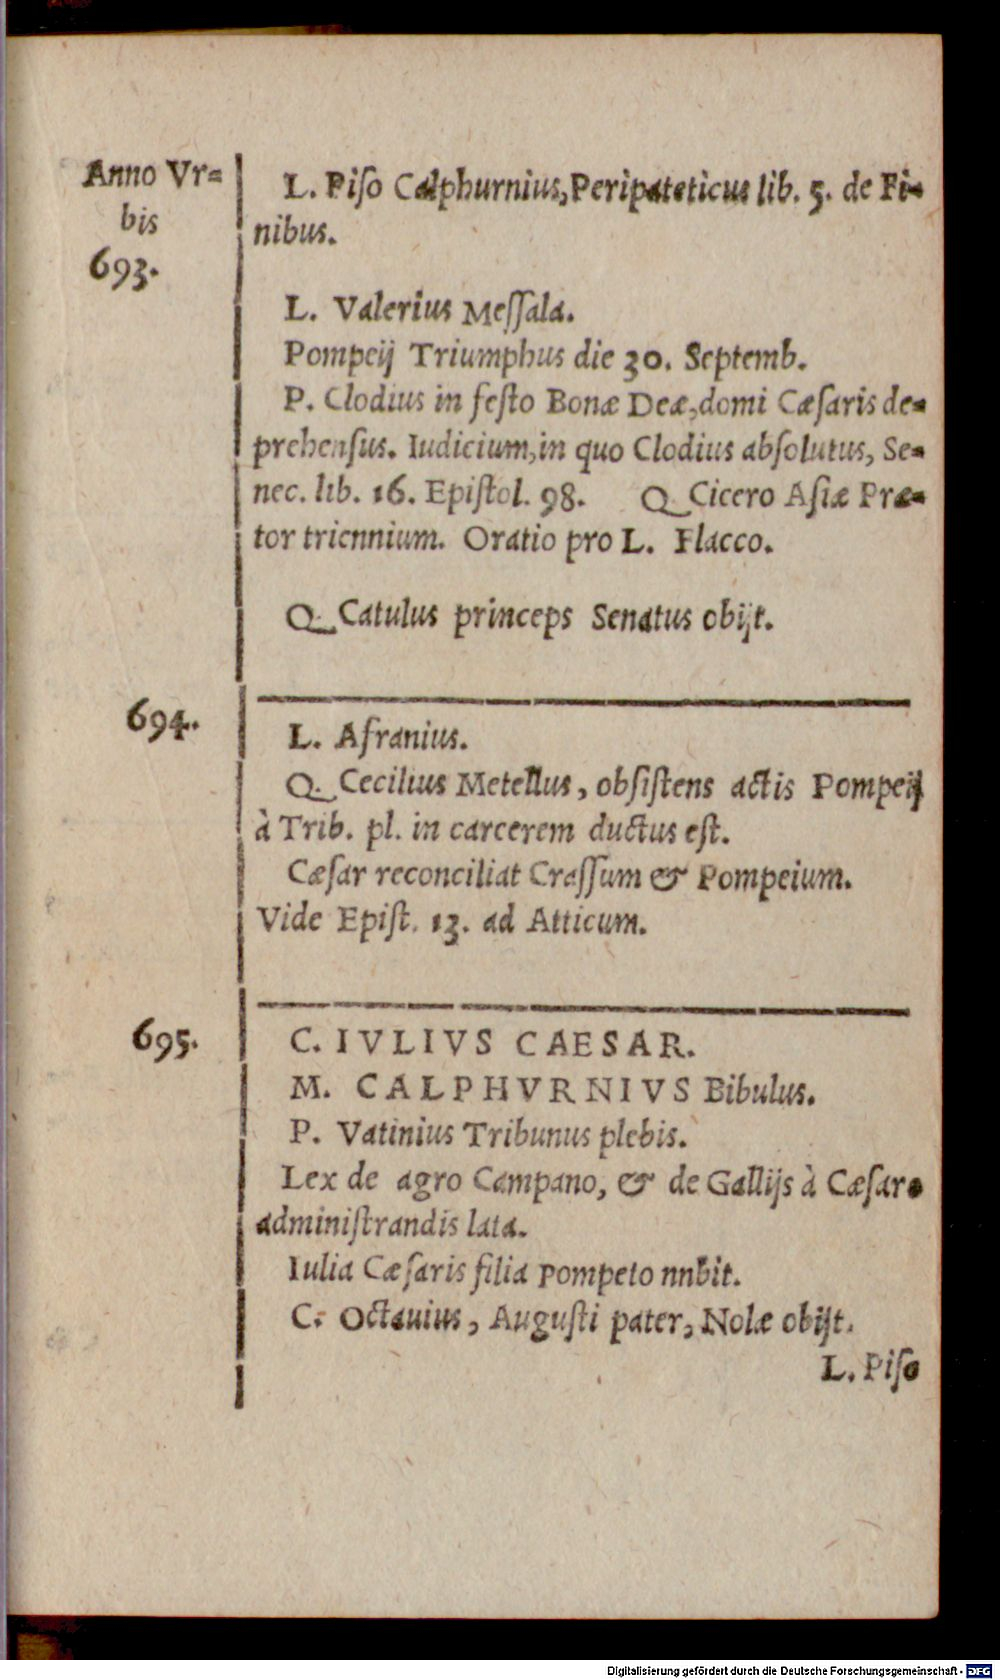 Anno Vr=
bis
693.
L. Piſo Calphurnius, Peripateticus lib. 5. de Fi=
nibus.
L. Valerius Meſſala.
Pompeij Triumphus die 30. Septemb.
P. Clodius in feſto Bonæ Deæ, domi Cæſaris de=
prehenſus. Iudicium, in quo Clodius abſolutus, Se=
nec. lib. 16. Epiſtol. 98. Q. Cicero Aſiæ Præ=
tor triennium. Oratio pro L. Flacco.
Q. Catulus princeps Senatus obijt.
694.
L. Afranius.
Q. Cecilius Metellus, obſiſtens actis Pompeij
à Trib. pl. in carcerem ductus eſt.
Cæſar reconciliat Craſſum & Pompeium.
Vide Epiſt. 13. ad Atticum.
695.
C. IVLIVS CAESAR.
M. CALPHVRNIVS Bibulus.
P. Vatinius Tribunus plebis.
Lex de agro Campano, & de Gallijs à Cæſare
adminiſtrandis lata.
Iulia Cæſaris filia Pompeio nnbit.
C. Octauius, Auguſti pater, Nolæ obijt.
L. Piſo
Digitalisierung gefördert durch die Deutsche Forschungsgemeinschaft - DFG